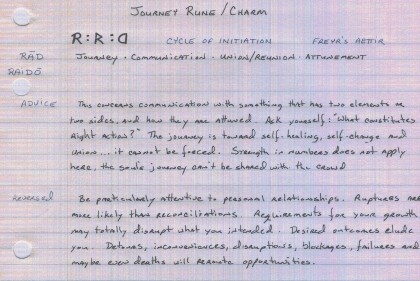 Journey Rune / Charm
R:R:D CYCLE OF INITIATION FREYR'S AETTIR
RĀD Journey · Communication · Union/Reunion · Attunement
RAIDŌ
ADVICE This concerns communication with something that has two elements or
two sides, and how they are attuned. Ask yourself: "What constitutes
Right Action?" The journey is toward self-healing, self-change and
union... it cannot be forced. Strength in numbers does not apply
here, the soul's journey can't be shared with the crowd
REVERSED Be particularly attentive to personal relationships. Ruptures are
more likely than reconciliations. Requirements for your growth
may totally disrupt what you intended. Desired outcomes elude
you. Detours, inconveniences, disruptions, blockages, failures and
maybe even deaths will reroute opportunities.